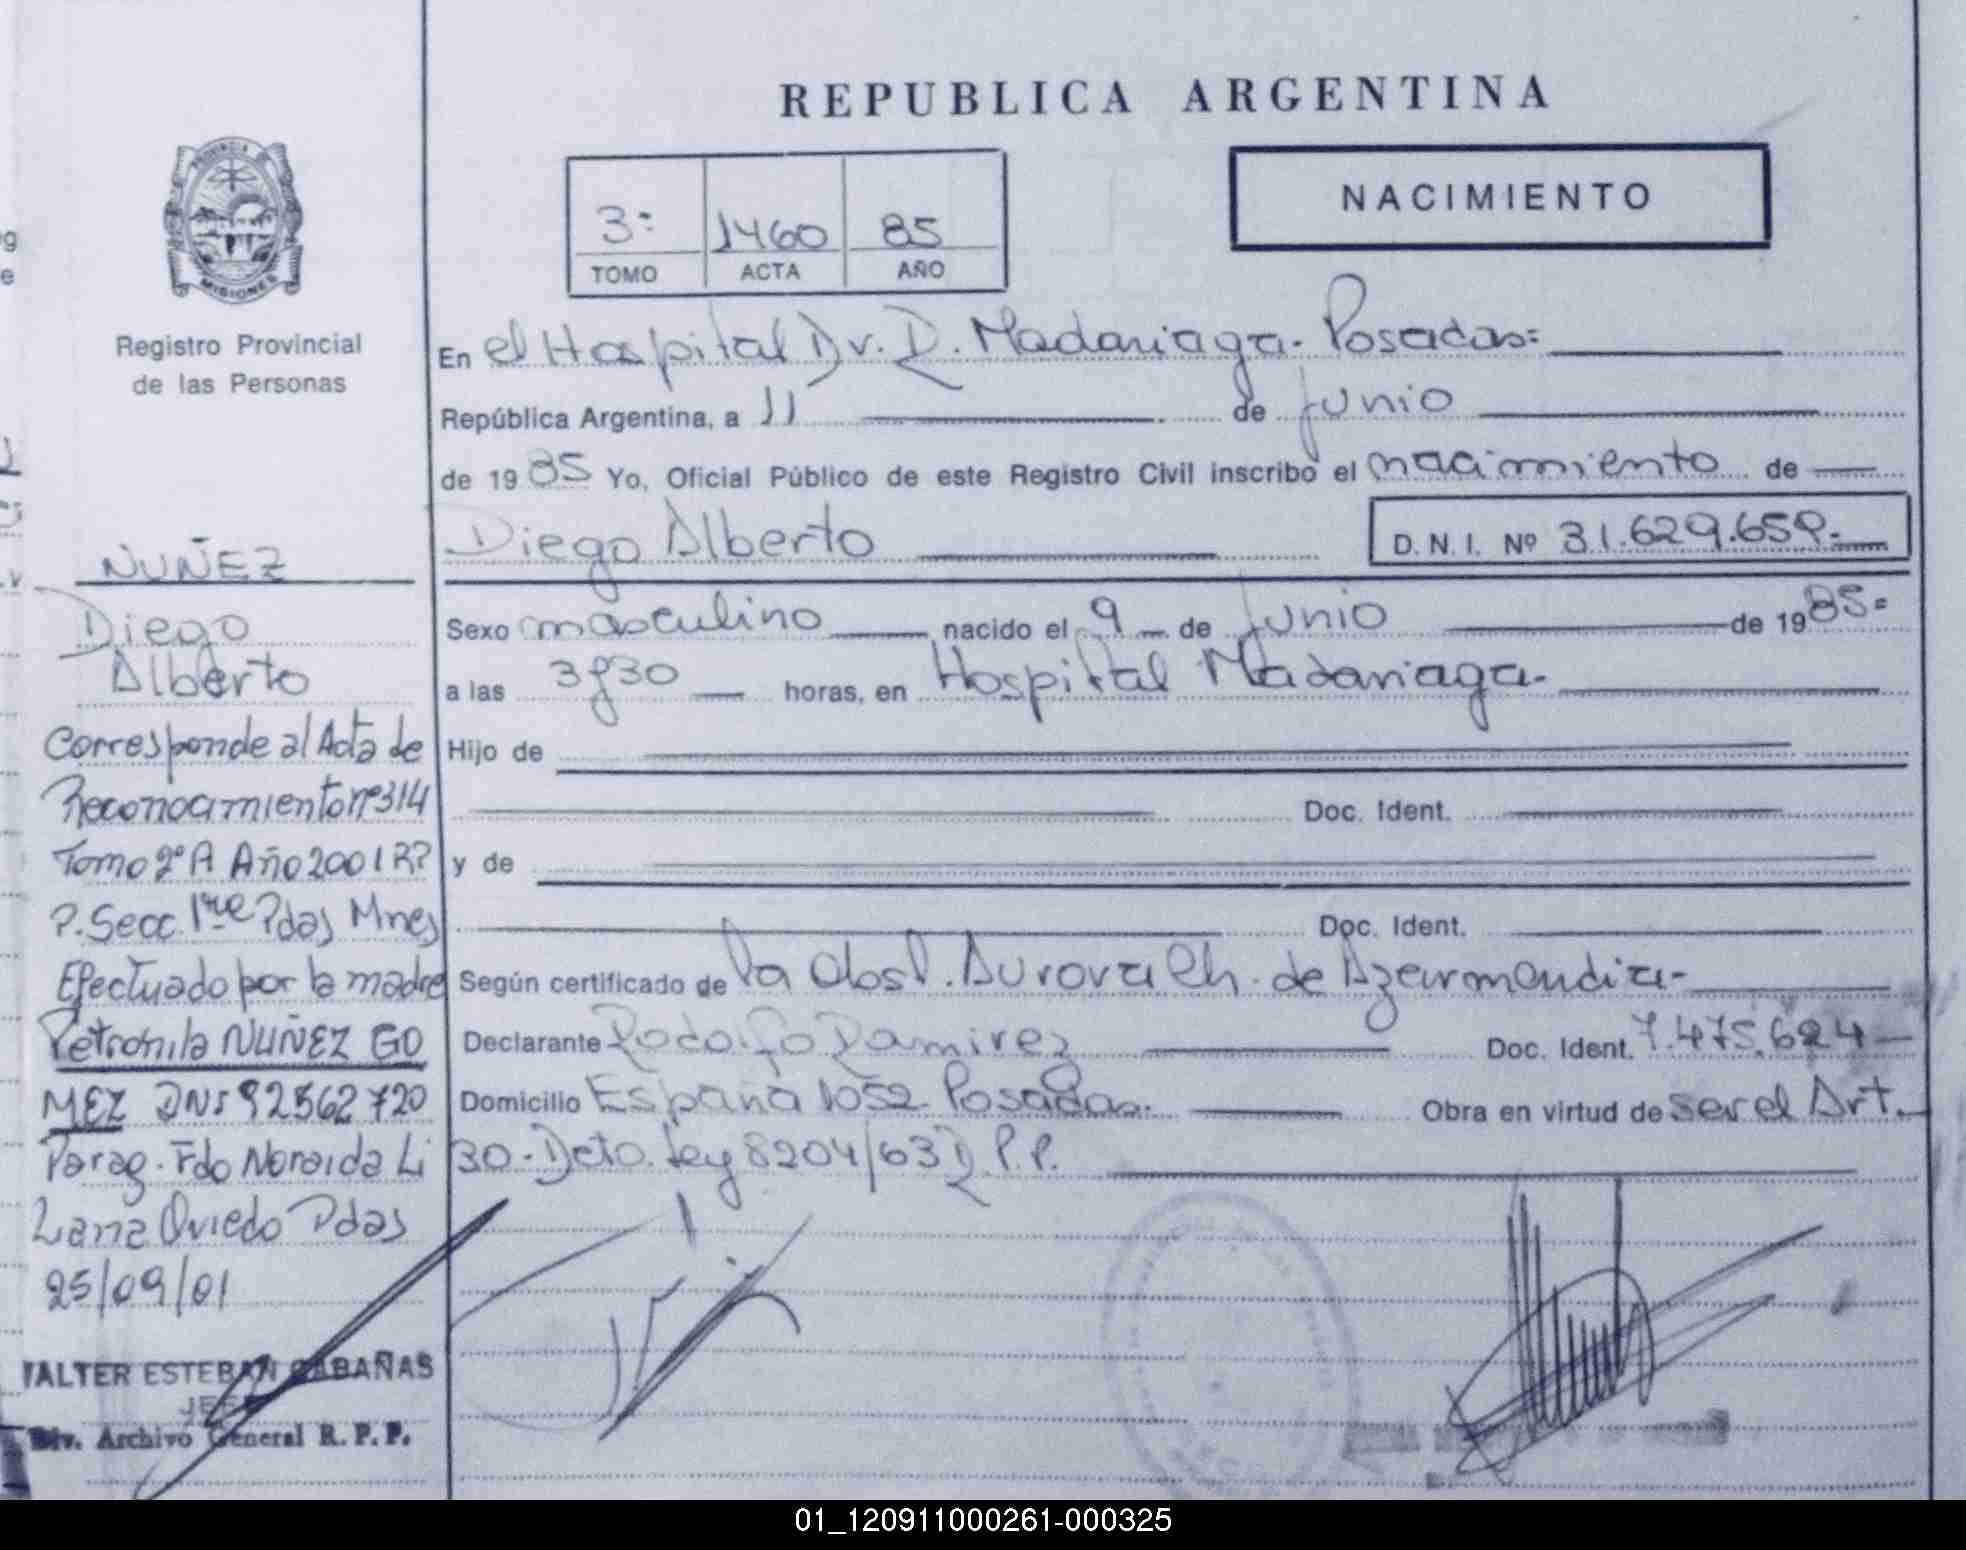 REPUBLICA ARGENTINA
PROVINCIA DE
MISIONES
Registro Provincial
de las Personas
3º
1460
85
TOMO
ACTA
AÑO
NACIMIENTO
En el Hospital Dr. R. Madariaga - Posadas =
República Argentina, a 11 de junio
de 1985 Yo, Oficial Público de este Registro Civil inscribo el nacimiento de
Diego Alberto
D. N. I. Nº 31.629.659.-
Sexo masculino nacido el 9 de junio de 1985=
a las 3y30 horas, en Hospital Madariaga-
Hijo de
Doc. Ident.
y de
Doc. Ident.
Según certificado de la Obst. Aurora Ch. de Azarmendia-
Declarante Rodolfo Ramirez Doc. Ident. 7.475.624
Domicilio España 1052 - Posadas. Obra en virtud de ser el Art.
30 - Dcto. Ley 8204/63 D. P. P.
NUÑEZ
Diego
Alberto
Corresponde al Acta de
Reconocimiento nº 314
Tomo 2º A Año 2001 R?
P. Secc. 1ra Pdas Mnes
Efectuado por la madre
Petronila NUÑEZ GO
MEZ DNI 92562720
Parag. Fdo Noraida Li
Lana Oviedo Pdas
25/09/01
WALTER ESTEBAN CABAÑAS
JEFE
Div. Archivo General R. P. P.
01_120911000261-000325